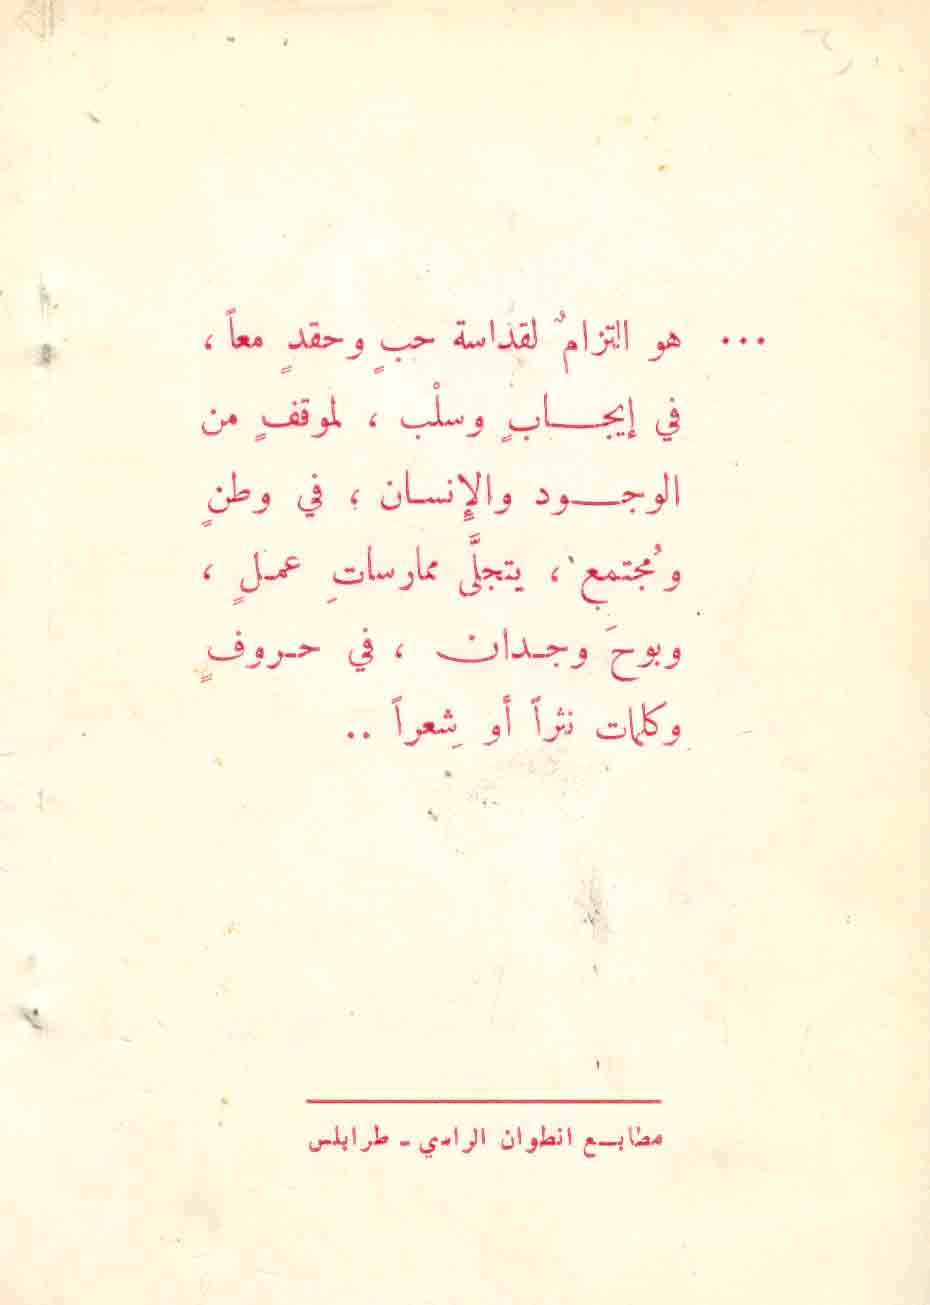 ... هو التزامٌ لقداسة حبٍ وحقدٍ معاً ،
في إيجــابٍ وسلْب ، لموقفٍ من
الوجــود والإنسان ، في وطنٍ
ومُجتمعٍ ، يتجلَّى ممارساتِ عمـلٍ ،
وبوحَ وجـدان ، في حـروفٍ
وكلمات نثراً أو شِعراً ..
مطابــع انطوان الراسي - طرابلس